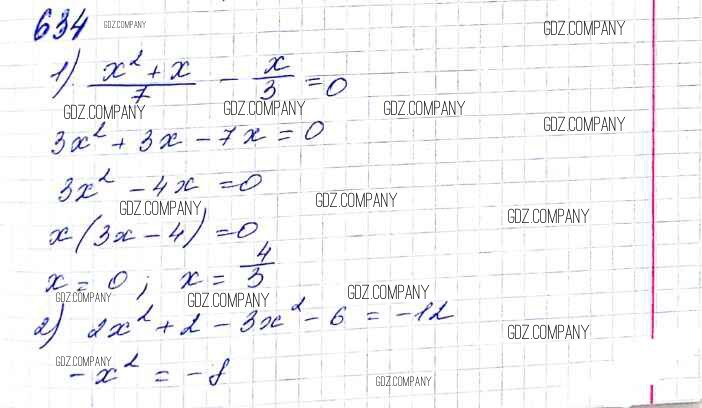 634
GDZ.COMPANY
GDZ.COMPANY
1). x² + x / 7 − x / 3 = 0
GDZ.COMPANY GDZ.COMPANY GDZ.COMPANY
GDZ.COMPANY
3x² + 3x − 7x = 0
3x² − 4x = 0
GDZ.COMPANY GDZ.COMPANY
GDZ.COMPANY
x(3x − 4) = 0
x = 0; x = 4/3
GDZ.COMPANY GDZ.COMPANY GDZ.COMPANY
2) 2x² + 2 − 3x² − 6 = −12
GDZ.COMPANY
GDZ.COMPANY
−x² = −8
GDZ.COMPANY